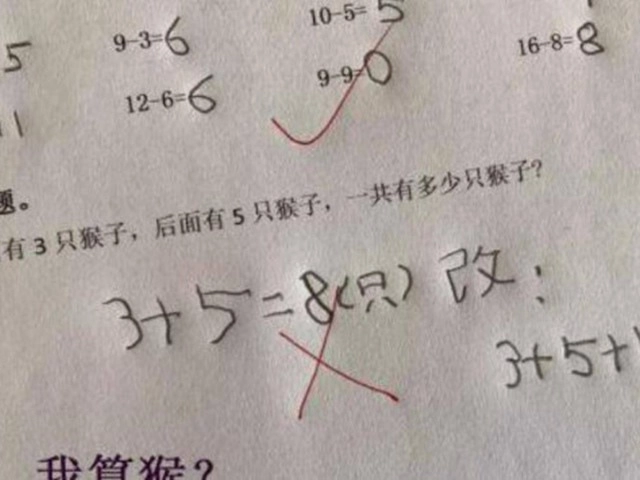 10-5=5
9-3=6
5
16-8=8
9-9=0
12-6=6
11
题。
有 3 只猴子，后面有 5 只猴子，一共有多少只猴子？
3+5=8(只) 改：
3+5+
我算猴？